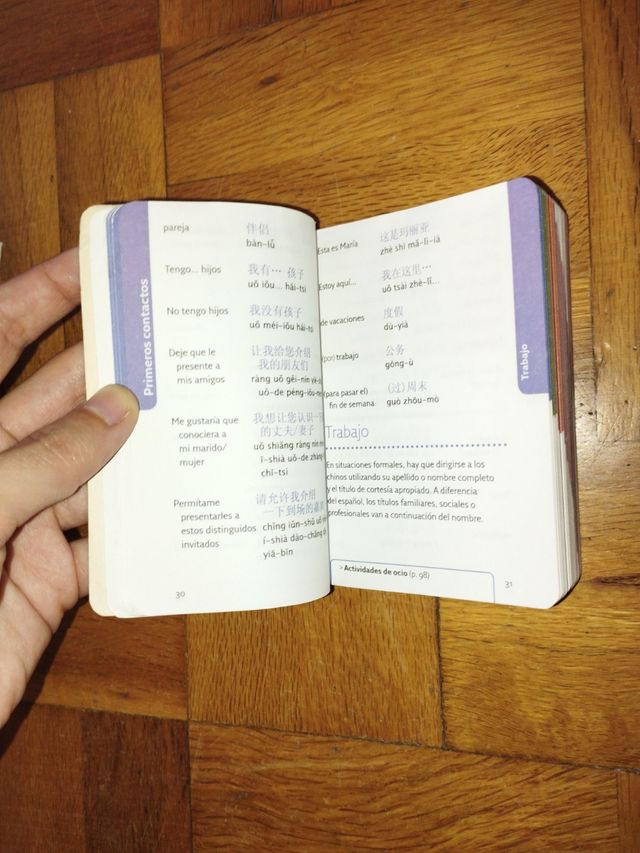 Primeros contactos
pareja 伴侣
bàn-lǚ
Tengo... hijos 我有… 孩子
uǒ iǒu... hái-tsi
No tengo hijos 我没有孩子
uǒ méi-iǒu hái-ts
Deje que le 让我给您介绍
presente a 我的朋友们
mis amigos ràng uǒ gěi-nín yiè-s
uǒ-de péng-iǒu-me
Me gustaría que 我想让您认识一
conociera a 的丈夫/妻子
mi marido/ uǒ shiǎng ràng nín
mujer ī-shià uǒ-de zhàng
chī-tsi
Permítame 请允许我介绍
presentarles a 一下到场的嘉
estos distinguidos chǐng iǔn-shǔ uǒ
invitados í-shià dào-chǎng
yiā-bīn
30
Esta es María 这是玛丽亚
zhè shì mǎ-lì-ià
Estoy aquí... 我在这里…
uǒ tsài zhè-lǐ...
de vacaciones 度假
dù-yià
(por) trabajo 公务
gōng-ù
(para pasar el) (过)周末
fin de semana guò zhōu-mò
Trabajo
En situaciones formales, hay que dirigirse a los
chinos utilizando su apellido o nombre completo
y el título de cortesía apropiado. A diferencia
del español, los títulos familiares, sociales o
profesionales van a continuación del nombre.
> Actividades de ocio (p. 98)
31
Trabajo